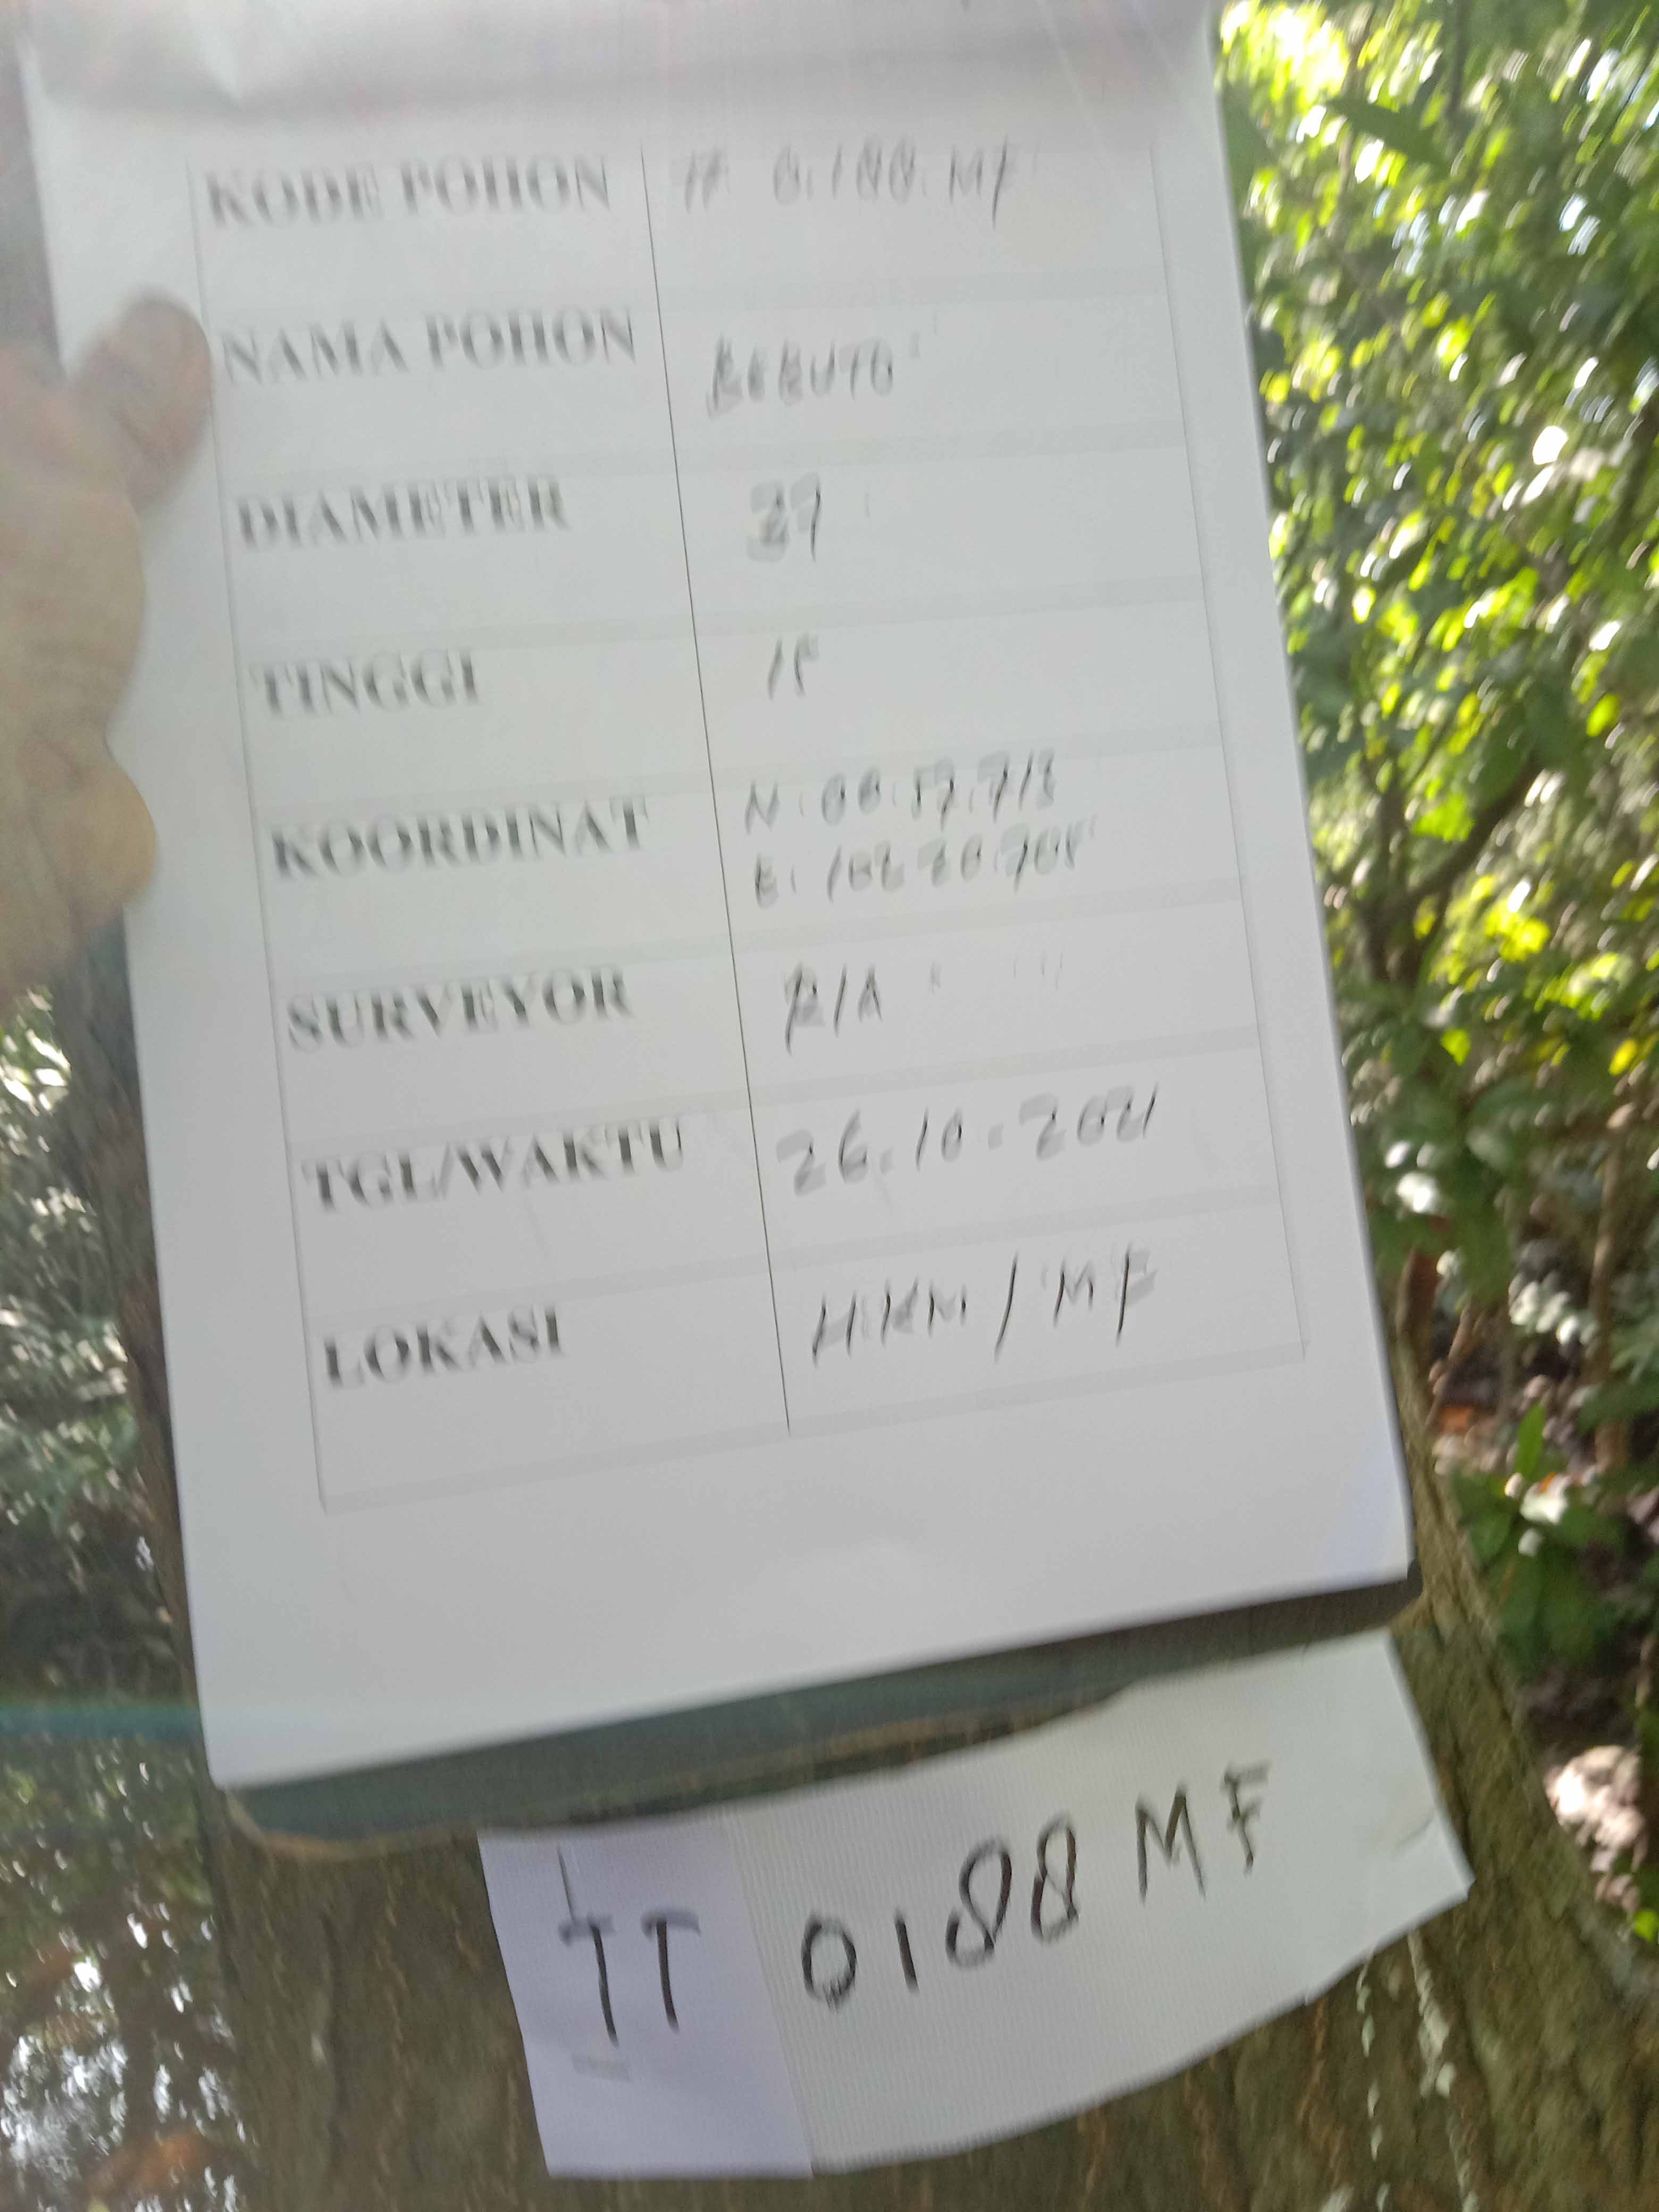 KODE POHON TT 0188 MF
NAMA POHON
DIAMETER
TINGGI 15
KOORDINAT N: 00: 57.713
E:
SURVEYOR RIA
TGL/WAKTU 26.10.2021
LOKASI HKM / MF
TT 0188 MF